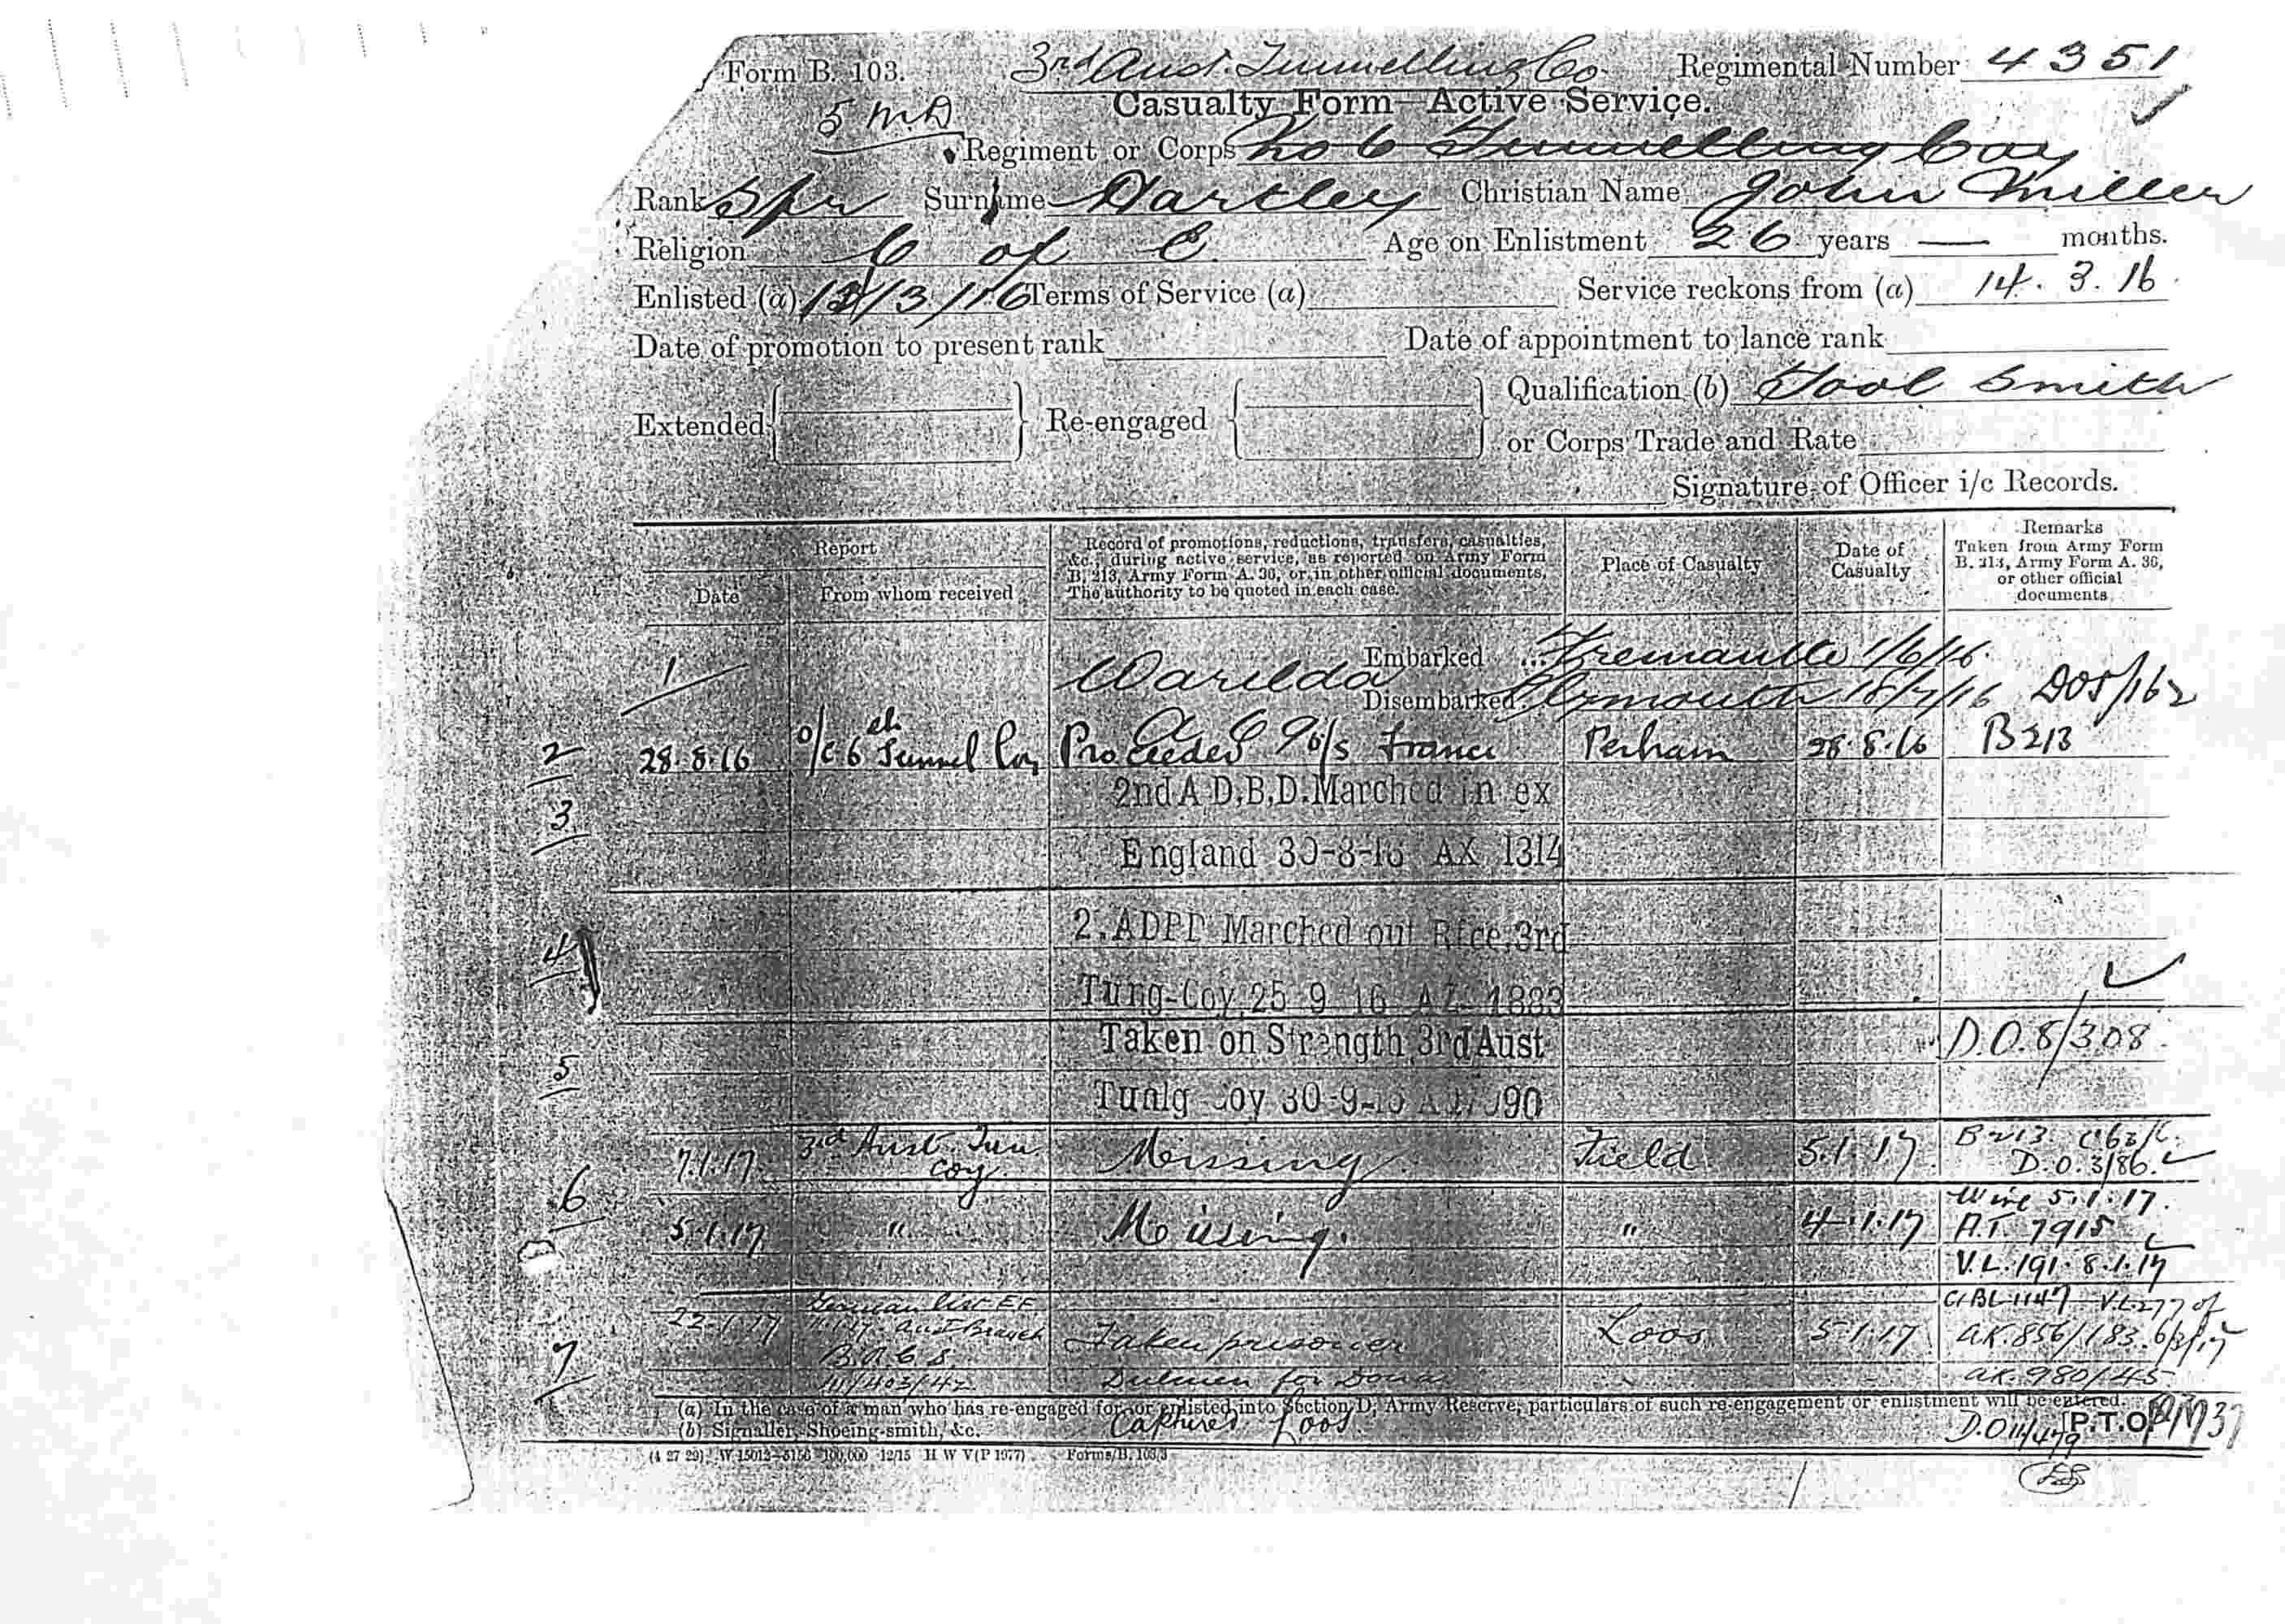 Form B. 103. 3rd Aust. Tunnelling Co. Regimental Number 4351
5 M.D Casualty Form—Active Service.
Regiment or Corps No 6 Tunnelling Coy
Rank Spr Surname Hartley Christian Name John Miller
Religion C of E Age on Enlistment 26 years — months.
Enlisted (a) 13/3/16 Terms of Service (a) Service reckons from (a) 14.3.16
Date of promotion to present rank Date of appointment to lance rank
Extended Re-engaged Qualification (b) Tool Smith
or Corps Trade and Rate
Signature of Officer i/c Records.
Report
Date From whom received
Record of promotions, reductions, transfers, casualties,
&c., during active service, as reported on Army Form
B. 213, Army Form A. 36, or in other official documents.
The authority to be quoted in each case.
Place of Casualty
Date of
Casualty
Remarks
Taken from Army Form
B. 213, Army Form A. 36,
or other official
documents
1 Warilda Embarked ... Fremantle 1/6/16.
Disembarked Plymouth 18/7/16 DO5/162
2 28.8.16 O/c 6th Tunnel Coy Proceeded O/s France Perham 28.8.16 B213
3 2nd A.D.B.D. Marched in ex
England 30-8-16 AX 1314
4 2. ADBD Marched out Rfce. 3rd
Tung-Coy. 25 9 16 AZ 1883
5 Taken on Strength 3rd Aust D.O.8/308
Tunlg Coy 30-9-16
6 7.1.17 3rd Aust. Tun Coy Missing Field 5.1.17 B213
D.O.3/86.
5.1.17 " Missing. " 4.1.17 Wire 5.1.17.
A.T. 7915
V.L. 191. 8.1.17
7 22.1.17 German list EE Taken prisoner Loos 5.1.17 V.L.277 of
Aust Branch AK.856/183. 6/3/17
Dulmen for AK.980/45
(a) In the case of a man who has re-engaged for, or enlisted into Section D, Army Reserve, particulars of such re-engagement or enlistment will be entered.
(b) Signaller, Shoeing-smith, &c. Captured Loos. D.O 11/479 [P.T.O.
(4 27 29) W 15012—5156 100,000 12/15 H W V(P 1977) Forms/B. 103/3